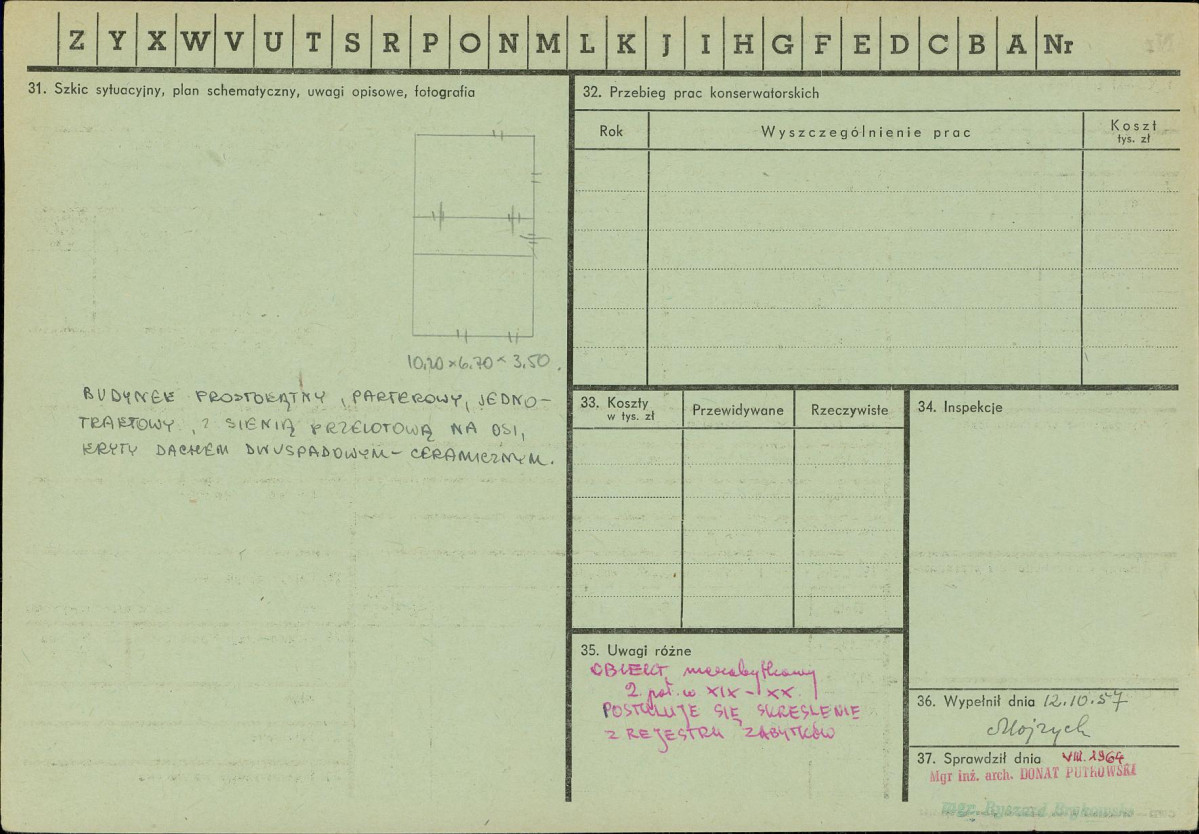 Z Y X W V U T S R P O N M L K J I H G F E D C B A Nr
31. Szkic sytuacyjny, plan schematyczny, uwagi opisowe, fotografia
10,20 × 6.70 × 3,50.
BUDYNEK PROSTOKĄTNY, PARTEROWY, JEDNO-
TRAKTOWY, Z SIENIĄ PRZELOTOWĄ NA OSI,
KRYTY DACHEM DWUSPADOWYM - CERAMICZNYM.
32. Przebieg prac konserwatorskich
Rok Wyszczególnienie prac Koszt
tys. zł
33. Koszty
w tys. zł
Przewidywane Rzeczywiste
34. Inspekcje
35. Uwagi różne
OBIEKT niezabytkowy
2 poł. w XIX - XX.
POSTULUJE SIĘ SKREŚLENIE
Z REJESTRU ZABYTKÓW
36. Wypełnił dnia 12.10.57
37. Sprawdził dnia VIII.1964
Mgr inż. arch. DONAT PUTKOWSKI
mgr Ryszard